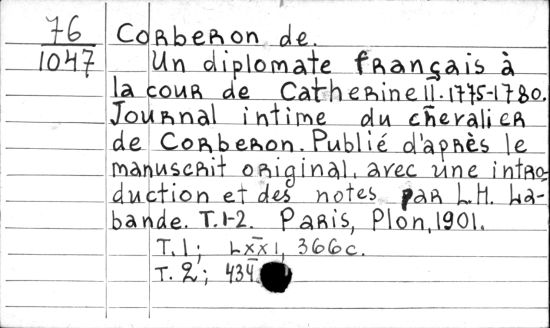 76 Corberon de.
1047 Un diplomate français à
la cour de Catherine II. 1775-1780.
Journal intime du chevalier
de Corberon. Publié d'après le
manuscrit original, avec une intro-
duction et des notes par L.H. La-
bande. T.1-2. Paris, Plon, 1901.
T.1; LXXI, 366c.
T.2; 434